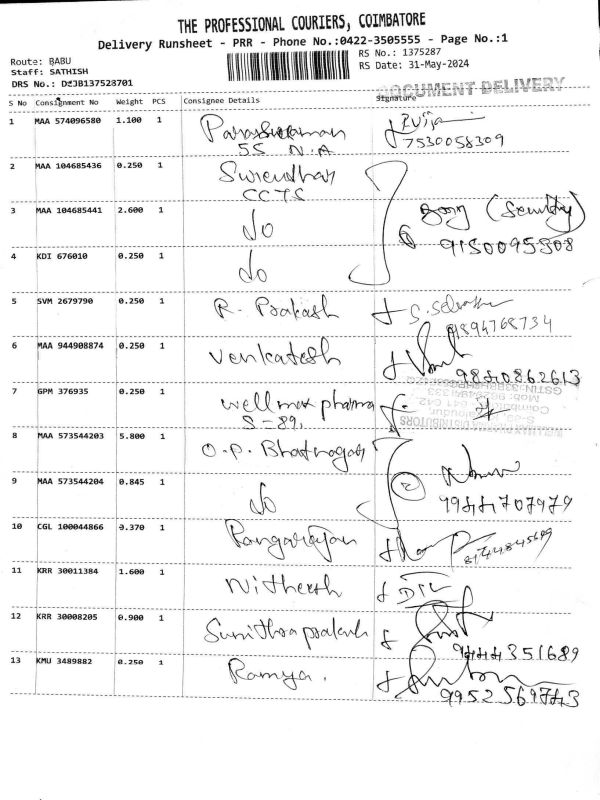 THE PROFESSIONAL COURIERS, COIMBATORE
Delivery Runsheet - PRR - Phone No.:0422-3505555 - Page No.:1
Route: BABU
RS No.: 1375287
Staff: SATHISH
RS Date: 31-May-2024
DRS No.: D
JB137528701
DOCUMENT DELIVERY
S No Consignment No Weight PCS Consignee Details Signature
1 MAA 574096580 1.100 1
7530058309
5S N.A
2 MAA 104685436 0.250 1 Surendhar
CCTS
3 MAA 104685441 2.600 1 do (Security)
6 9150095308
4 KDI 676010 0.250 1 do
5 SVM 2679790 0.250 1 R. Prakash
9894768734
6 MAA 944908874 0.250 1 Venkatesh
9840862613
7 GPM 376935 0.250 1 Wellmax pharma
S-89,
8 MAA 573544203 5.800 1 O.P. Bhatnagar
9 MAA 573544204 0.845 1 do 2
7944707979
10 CGL 100044866 0.370 1 Rangarajan
11 KRR 30011384 1.600 1 Nitheesh
12 KRR 30008205 0.900 1 Sunithra prakash
9444351689
13 KMU 3489882 0.250 1 Ramya.
9952569743